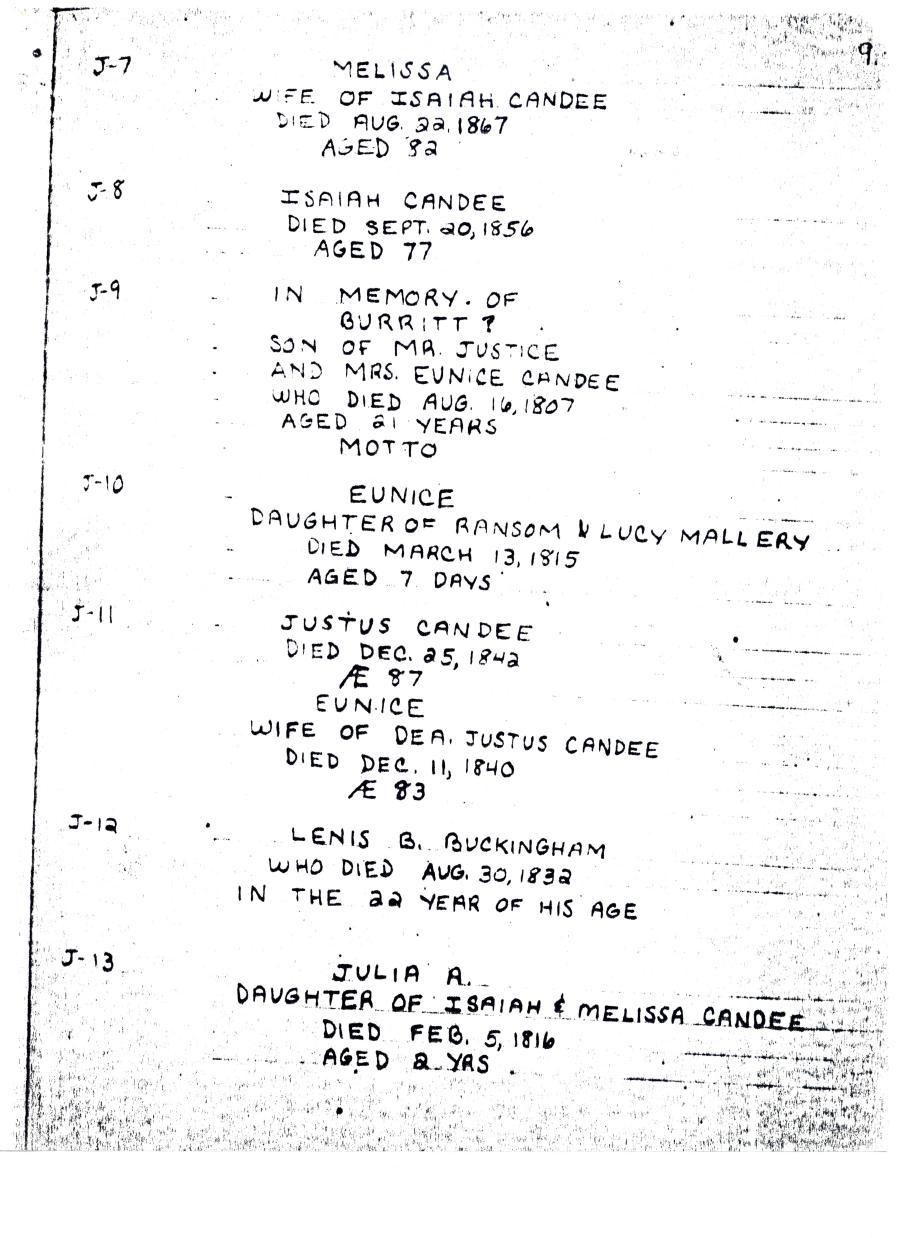 9.
J-7 MELISSA
WIFE OF ISAIAH CANDEE
DIED AUG. 22, 1867
AGED 82
J-8 ISAIAH CANDEE
DIED SEPT. 20, 1856
AGED 77
J-9 IN MEMORY. OF
BURRITT ?
SON OF MR. JUSTICE
AND MRS. EUNICE CANDEE
WHO DIED AUG. 16, 1807
AGED 21 YEARS
MOTTO
J-10 EUNICE
DAUGHTER OF RANSOM & LUCY MALLERY
DIED MARCH 13, 1815
AGED 7 DAYS
J-11 JUSTUS CANDEE
DIED DEC. 25, 1842
Æ 87
EUNICE
WIFE OF DEA. JUSTUS CANDEE
DIED DEC. 11, 1840
Æ 83
J-12 LENIS B. BUCKINGHAM
WHO DIED AUG. 30, 1832
IN THE 22 YEAR OF HIS AGE
J-13 JULIA A.
DAUGHTER OF ISAIAH & MELISSA CANDEE
DIED FEB. 5, 1816
AGED 2 YRS.